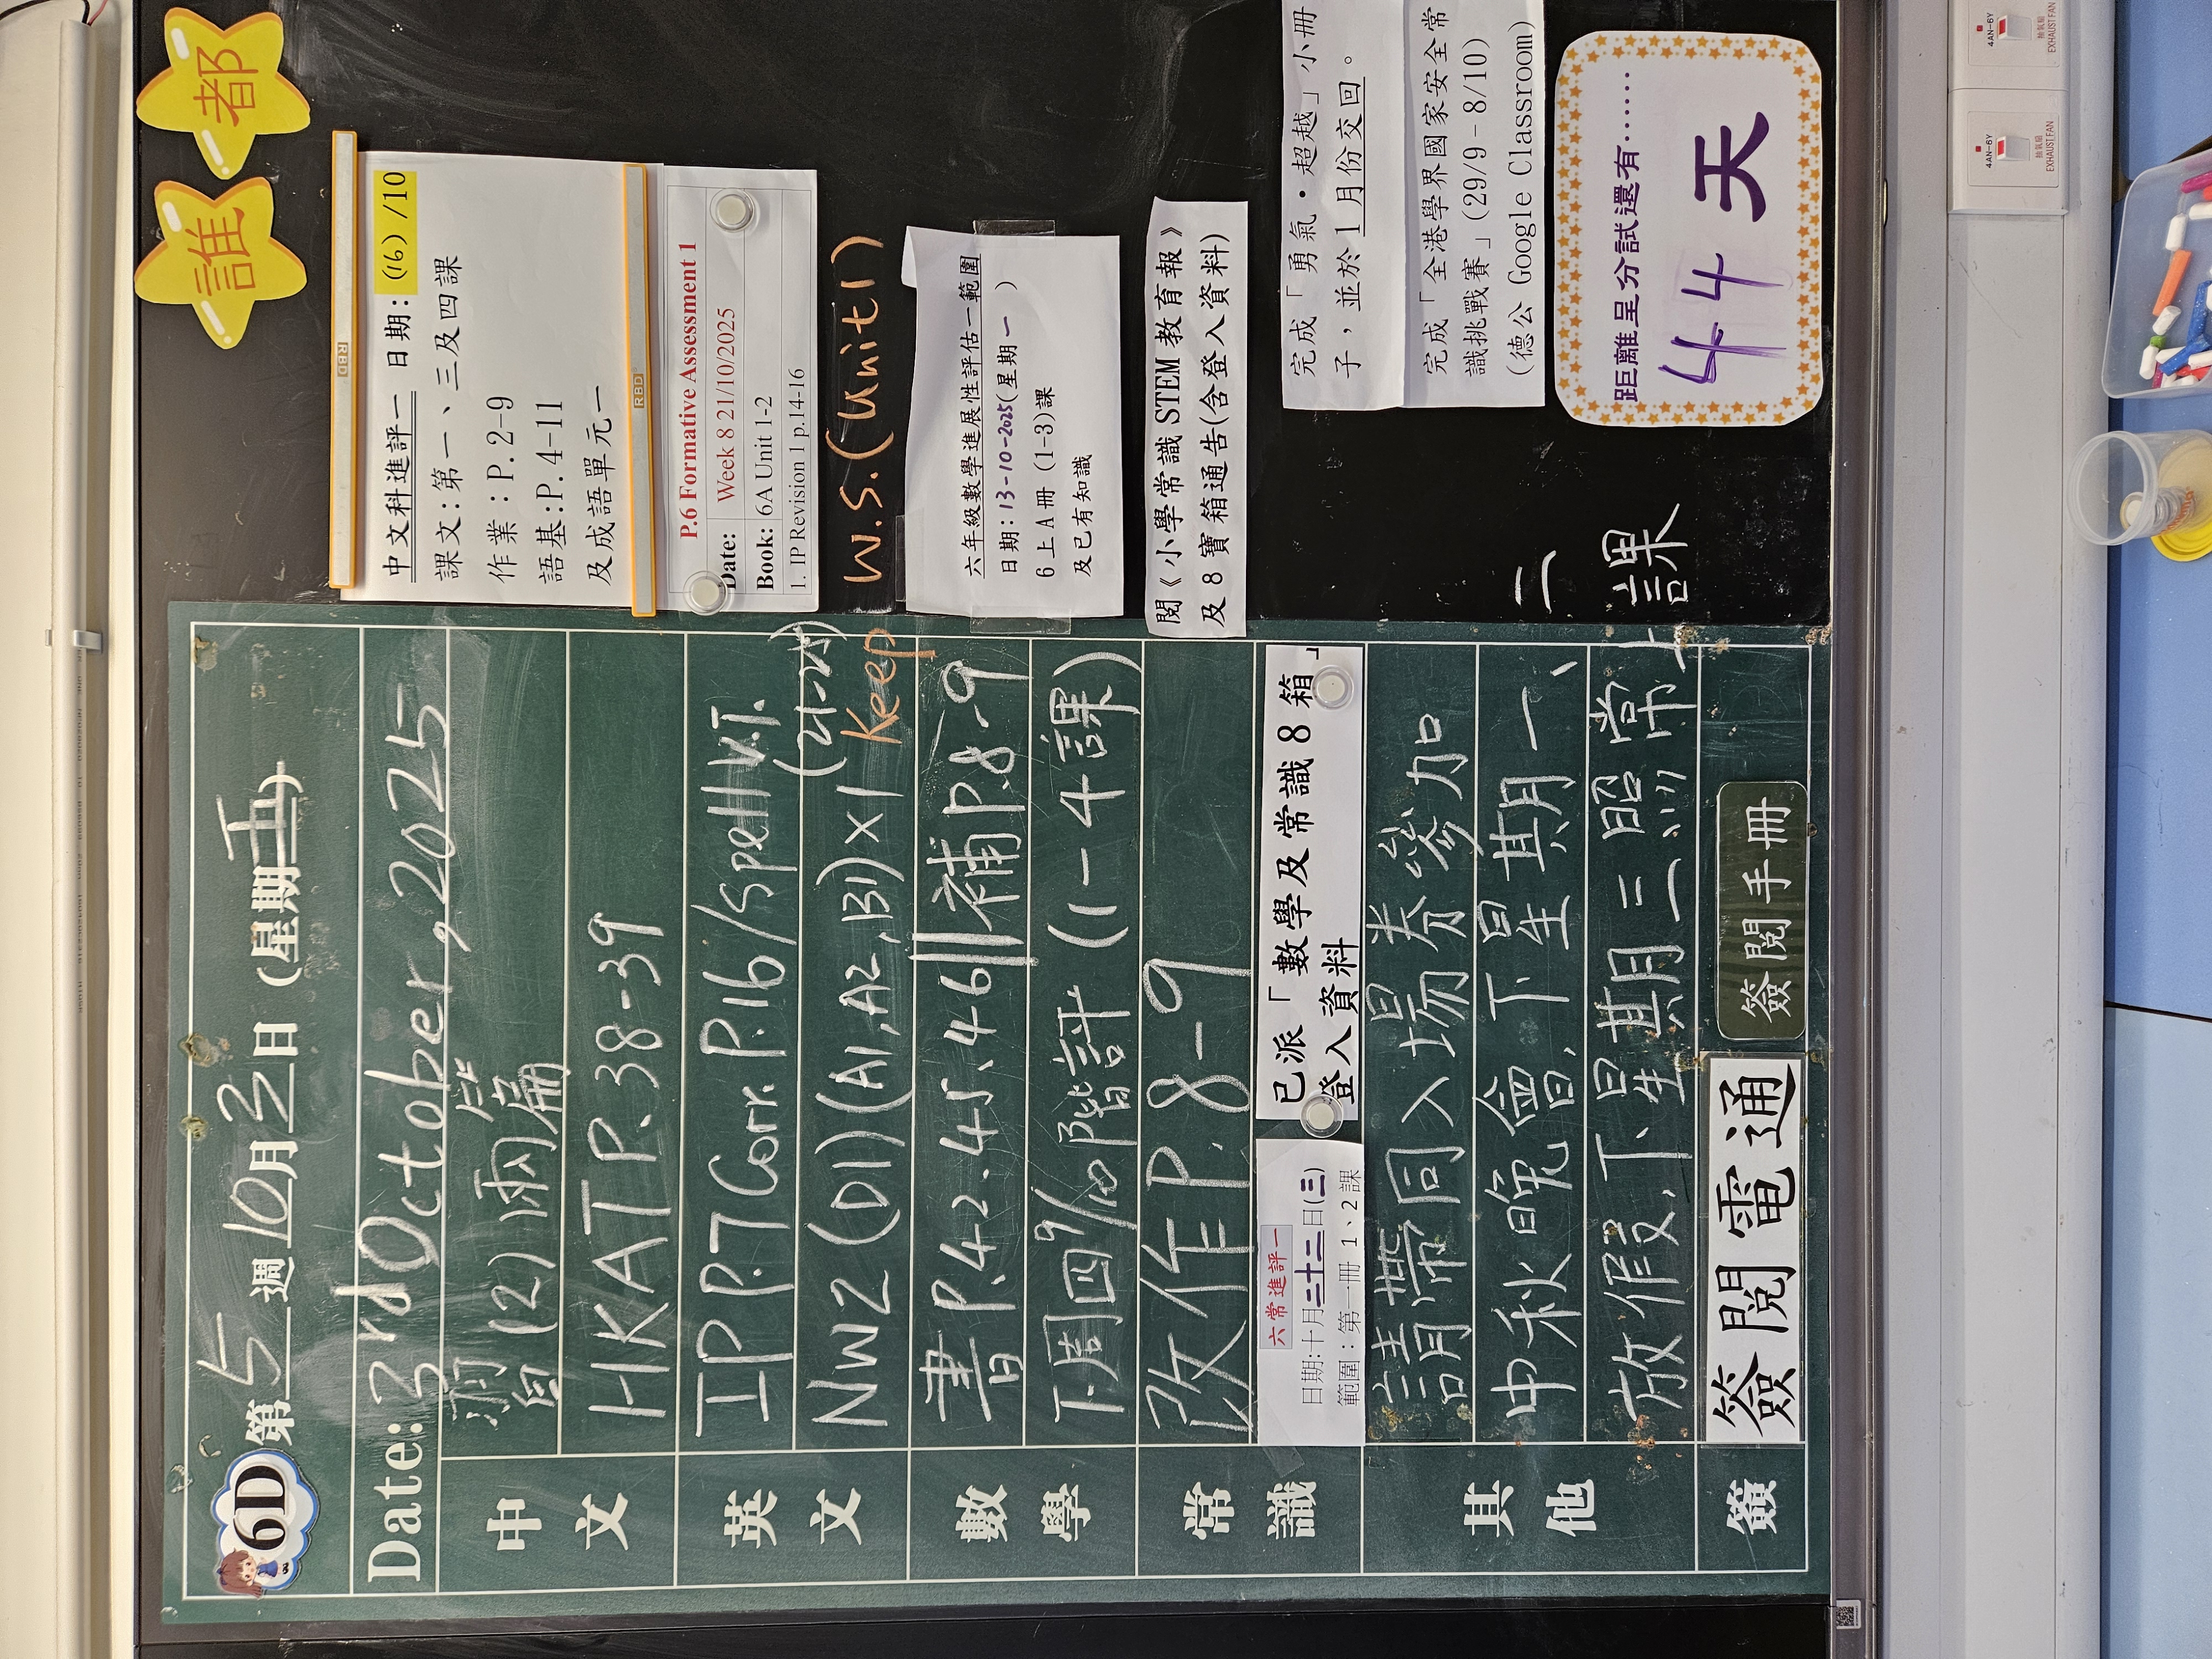 6D 第5週10月3日(星期五)
Date: 3rd October, 2025
中文
習(2)兩篇
HKAT P.38-39
英文
IP P.7 Corr. P.16/Spell V.T.
NW2 (D1)(A1,A2,B1)×1
Keep
W.S.(Unit1)
數學
書P.42.45、46||補P.8-9
下周四9/10階評(1-4課)
常識
改作P.8-9
六常進評一
日期:十月二十二日(三)
範圍:第一冊 1、2課
已派「數學及常識8箱」
登入資料
其他
請帶同入場券參加
中秋晚會,下星期一、二
放假,下星期三照常上課
簽
簽閱電通
簽閱手冊
誰都
中文科進評一 日期:(16)/10
課文:第一、三及四課
作業:P.2-9
語基:P.4-11
及成語單元一
RBD
RBD
P.6 Formative Assessment 1
Date: Week 8 21/10/2025
Book: 6A Unit 1-2
1. IP Revision 1 p.14-16
六年級數學進展性評估一範圍
日期:13-10-2025(星期一)
6上A冊 (1-3)課
及已有知識
閱《小學常識STEM教育報》
及8寶箱通告(含登入資料)
完成「勇氣・超越」小冊
子,並於1月份交回。
完成「全港學界國家安全常
識挑戰賽」(29/9-8/10)
(德公 Google Classroom)
距離呈分試還有……
44天
4AN-6Y
抽氣扇
EXHAUST FAN
4AN-6Y
抽氣扇
EXHAUST FAN